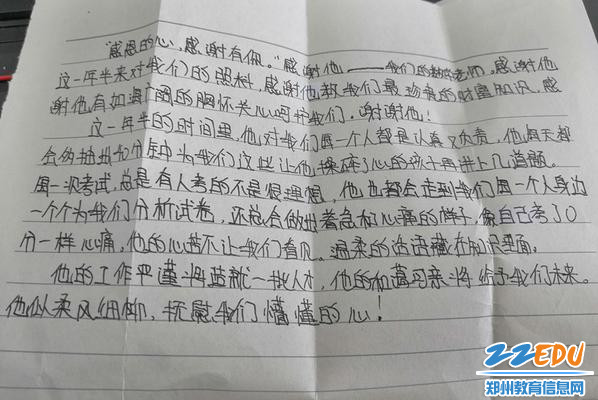 “感恩的心，感谢有你。”感谢他——我们的数学老师。感谢他
这一年半来对我们的照料，感谢他教我们最珍贵的财富知识，感
谢他有如海广阔的胸怀关心呵护我们，谢谢他！
这一年半的时间里，他对我们每一个人都是认真又负责，他每天都
会的抽出30分钟为我们这些让他操碎了心的孩子再讲上几道题。
每一次考试，总是有人考的不是很理想，他也都会走到我们每一个人身边
一个个为我们分析试卷，还总会做出着急和心痛的样子，像自己考了0
分一样心痛，他的心苦不让我们看见。温柔的话语藏在知识里面。
他的工作严谨将造就一批人才，他的和蔼可亲将给予我们未来。
他似柔风细柳，抚慰我们懵懂的心！
ZZEDU
郑州教育信息网